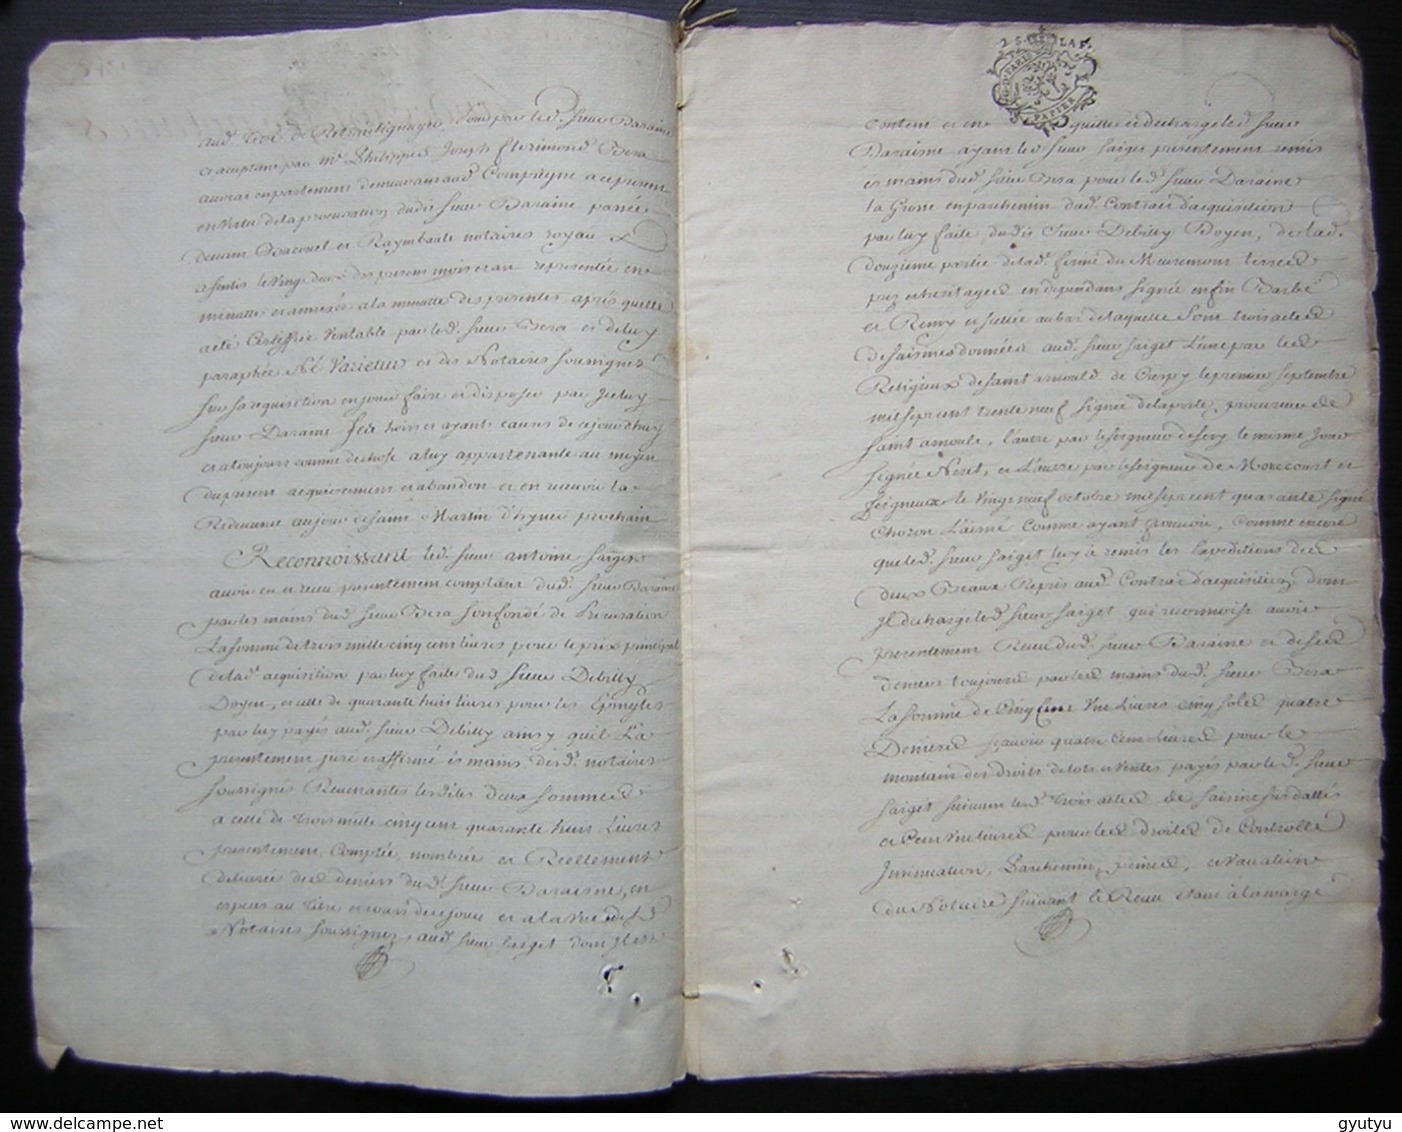 aud. titre de Retrait lignager, pour par led. Sieur Daraine
et acceptant par Mr. Philippes Joseph Florimond Bera
avocat en parlement demeurant aud. Compiegne a ce present
en vertu de la procuration dudit Sieur Daraine passée
devant et Raymbault notaires royaux
Senlis le vingt deux des presens mois et an representée en
minutte et annexée a la minutte des presentes apres quelle
a eté Certiffiée veritable par led. Sieur Bera et de luy
paraphée Ne Varietur et des Notaires soussignés
sur sa requisition en jouir faire et disposer par iceluy
Sieur Daraine ses hoirs et ayants causes de ce jourdhuy
et a toujours comme de chose a luy appartenante au moyen
du present acquiescement et abandon et en recevoir la
Redevance au jour de Saint Martin d'hyver prochain
Reconnoissant led. Sieur Antoine Sarget
avoir eu et receu presentement comptant dud. Sieur Daraine
par les mains dud. Sieur Bera son fondé de Procuration
La somme de trois mille cinq cent livres pour le prix principal
de lad. acquisition par luy faite dud. Sieur Debilly
Doyen, et celle de quarante huit livres pour les Epingles
par luy payés aud. Sieur Debilly ainsy qu'il l'a
presentement juré et affirmé es mains desd. notaires
soussignés Revenantes lesdites deux sommes
a celle de trois mille cinq cent quarante huit Livres
presentement Comptée, nombrée et Reellement
delivrée des deniers dud. Sieur Daraine, en
especes au titre et cours de ce jour et a la vue desd.
Notaires soussignez aud. Sieur Sarget dont il est
2 S. LA F.
G. D. PARIS
PAPIER
content et en quitte et decharge led. Sieur
Daraine ayant led. Sieur Sarget presentement remis
es mains dud. Sieur Bera pour led. Sieur Daraine
la Grosse en parchemin dud. Contrat d'acquisition
par luy faite dudit Sieur Debilly Doyen, de lad.
douzieme partie de lad. ferme du Meuremont terres
prez et heritages en dependans signée enfin Barbé
et Remy et scellée au bas de laquelle sont trois actes
de saisines données aud. Sieur Sarget l'une par les
Religieux de Saint Arnould de Crespy le premier Septembre
mil sept cent trente neuf signée delaporte, procureur de
Saint Arnoult, l'autre par le Seigneur de Sery le meme jour
signée Neret, et l'autre par le Seigneur de Morcourt et
Feigneux le vingt neuf octobre mil sept cent quarante signé
Choron L'ainé comme ayant pouvoir, comme encore
que led. Sieur Sarget luy a remis les Expeditions des
deux Beaux Repris aud. Contrat d'acquisition, dont
il decharge led. Sieur Sarget qui reconnoist avoir
presentement Receu dud. Sieur Daraine et de ses
deniers toujours par les mains dud. Sieur Bera
La somme de Cinq Cent une Livres cinq sols quatre
Deniers sçavoir quatre Cent livres pour le
montant des droits de lots et ventes payés par led. Sieur
Sarget suivant les. trois actes de saisine susdattés
et Cent une livres pour les droits de Controlle
Insinuation, Parchemin, peines, et vacation
du Notaire suivant le Receu etant à la marge